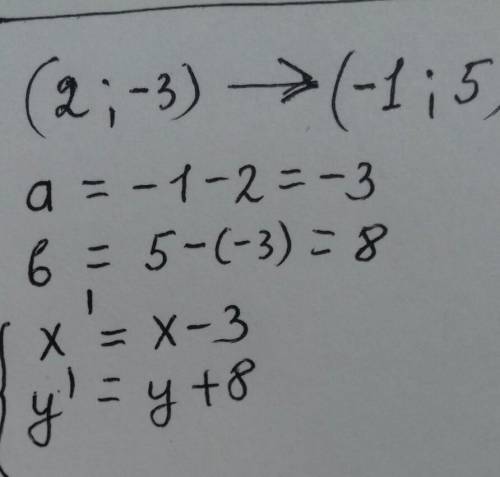 (2 ; -3) → (-1 ; 5)
a = -1 - 2 = -3
в = 5 - (-3) = 8
{ x' = x - 3
y' = y + 8